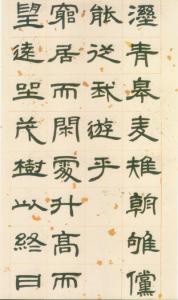 溼青皋麦雉朝雊儻
能從我遊乎
窮居而閑處升高而
望遠坐茂樹以終日